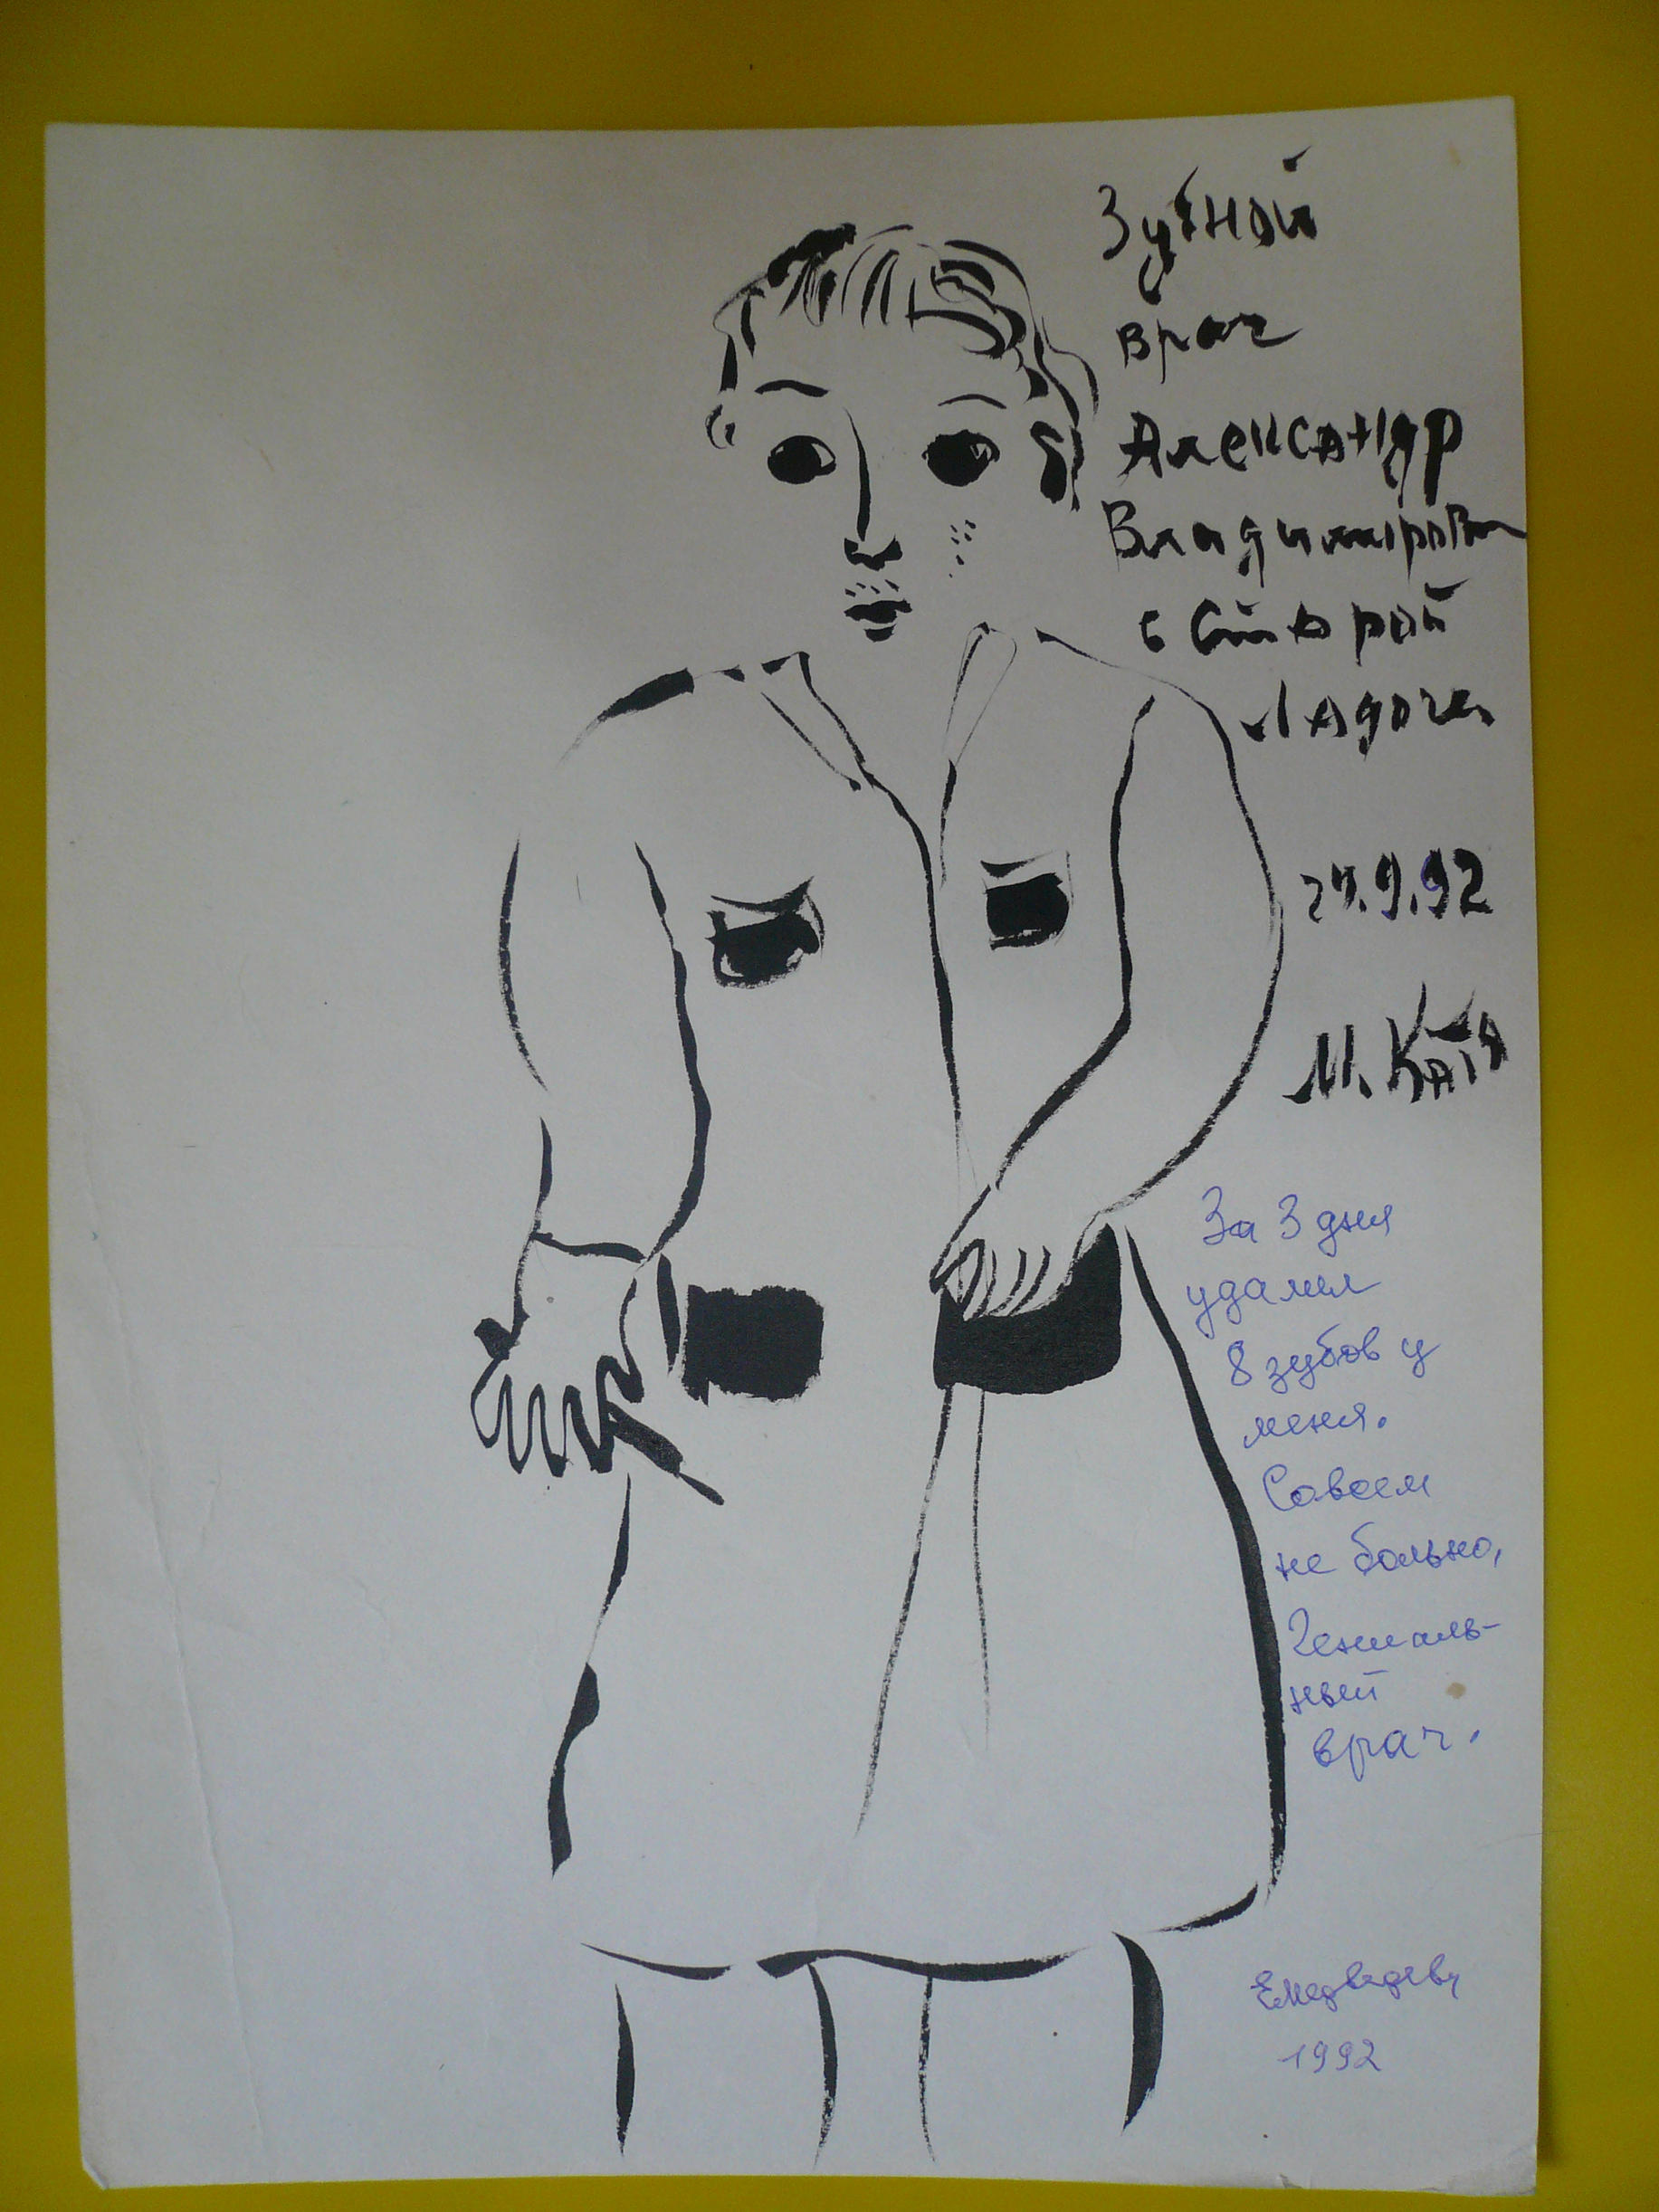 Зубной
врач
Александр
Владимирович
в Старой
Ладоге
9.92
М.
За 3 дня
удалил
8 зубов у
меня.
Совсем
не больно,
Гениаль-
ный
врач.
ЕМедведев
1992